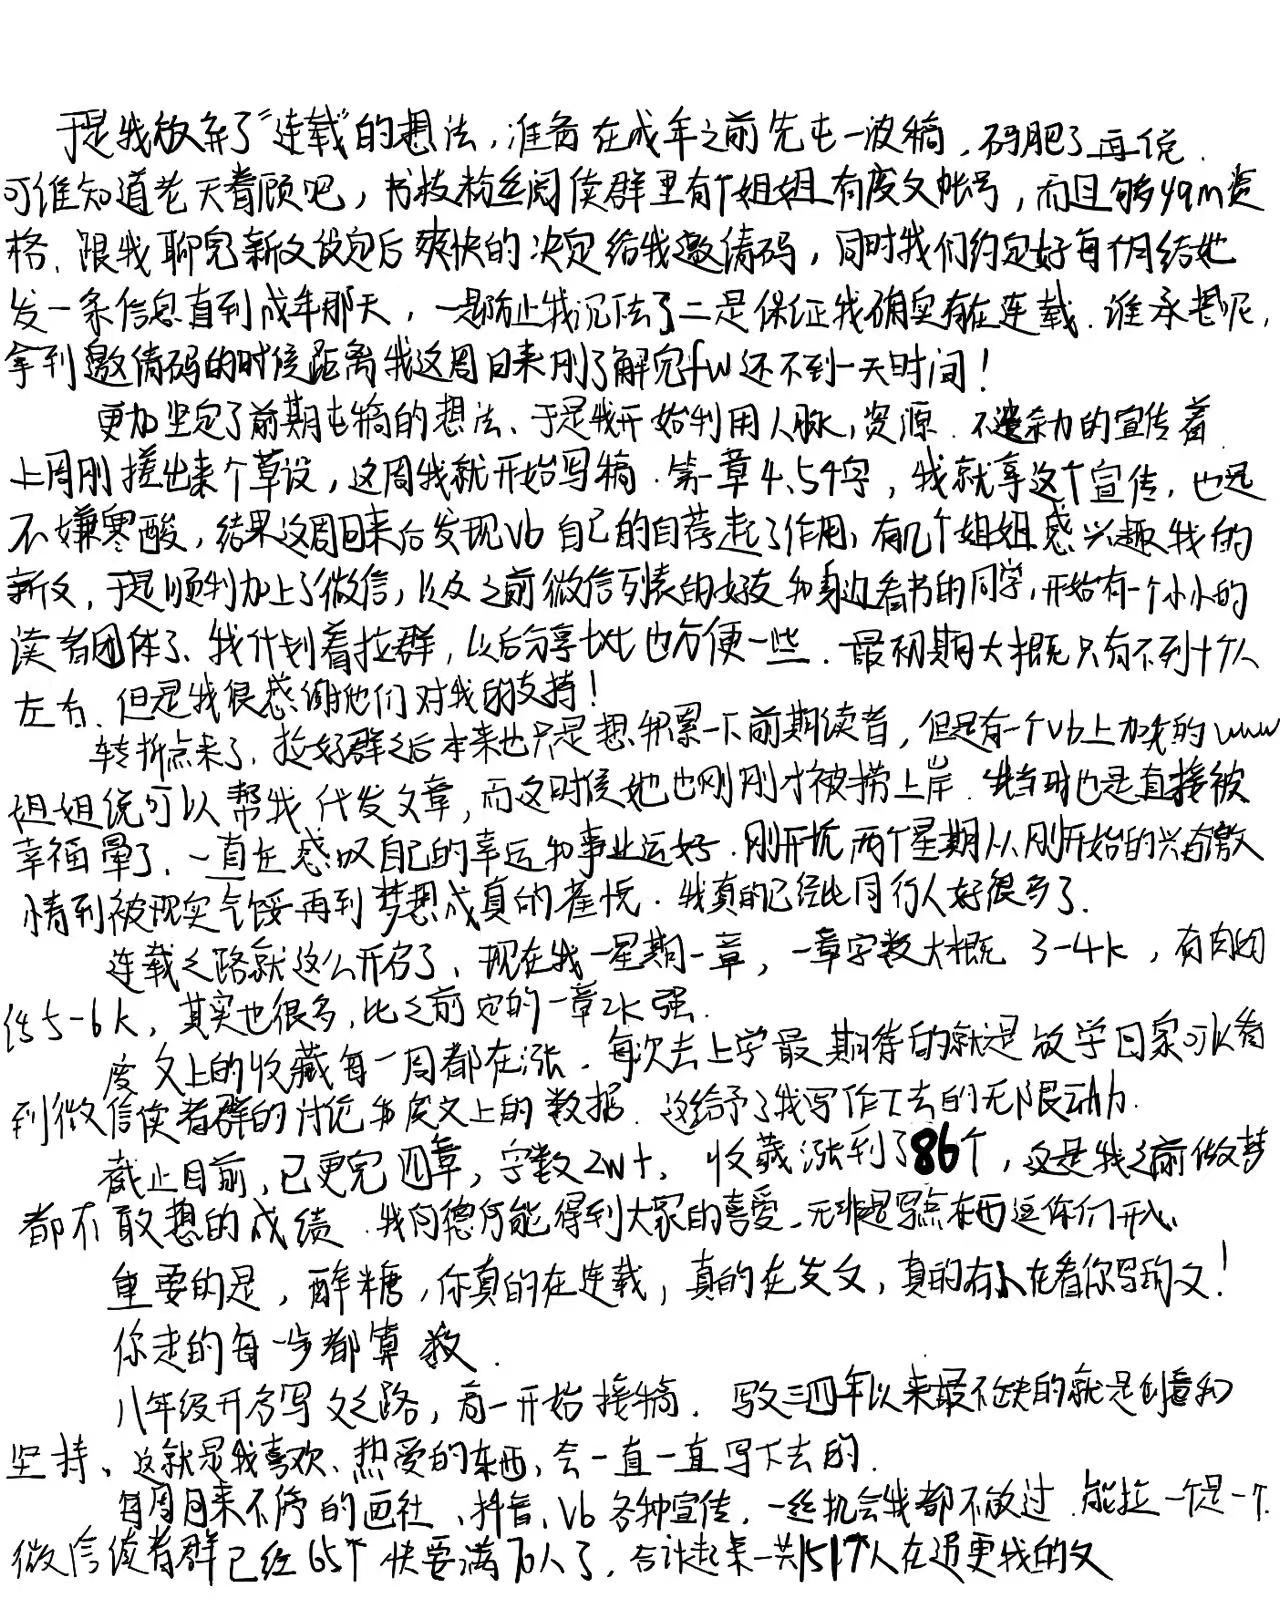 于是我放弃了“连载”的想法，准备在成年之前先屯一波稿，码肥了再说.
可谁知道老天眷顾吧，书技粉丝阅读群里有个姐姐有废文帐号，而且够yqm资
格、跟我聊完新文设定后爽快的决定给我邀请码，同时我们约定好每个月给她
发一条信息直到成年那天，一是防止我沉法了二是保证我确实有在连载.谁承想呢，
拿到邀请码的时候距离我这周日来刚了解完fw还不到一天时间！
更加坚定了前期屯稿的想法、于是我开始利用人脉，资源.不遗余力的宣传着
上周刚搓出来个草设，这周我就开始写稿.第一章4、54字，我就享这个宣传，也是
不嫌寒酸，结果这周回来后发现vb自己的自荐起了作用，有几个姐姐感兴趣我的
新文，于是顺利加上了微信，以及之前微信列表的好友和身边看书的同学，开始有一个小小的
读者团体了、我计划着拉群，以后分享txt也方便一些.最初期大概只有不到十个人
左右、但是我很感谢他们对我的支持！
转折点来了，拉好群之后本来也只是想积累一下前期读者，但是有一个vb上加我的www
姐姐说可以帮我代发文章，而这时候她也刚刚才被捞上岸.我当时也是直接被
幸福晕了、一直在感叹自己的幸运和事业运好.刚开坑两个星期从刚开始的兴奋激
情到被现实气馁再到梦想成真的雀悦.我真的已经比同行人好很多了.
连载之路就这么开启了、现在我一星期一章，一章字数大概 3-4k，有肉的
话5-6k，其实也很多，比之前定的一章2k强.
废文上的收藏每一周都在涨.每次去上学最期待的就是放学回家可以看
到微信读者群的讨论和废文上的数据.这给予了我写作下去的无限动力.
截止目前，已更完四章，字数2w+，收藏涨到了86个，这是我之前做梦
都不敢想的成绩.我何德何能得到大家的喜爱、无非是写点东西逗你们开心、
重要的是，醉糖，你真的在连载，真的在发文，真的有人在看你写的文！
你走的每一步都算数.
八年级开启写文之路，高一开始接稿.写文三四年以来最不缺的就是创意和
坚持、这就是我喜欢、热爱的东西，会一直一直写下去的.
每周回来不停的画社、抖音、Vb各种宣传，一丝机会我都不放过.能拉一个是一个
微信读者群已经65个快要满70人了，合计起来一共151个人在追更我的文